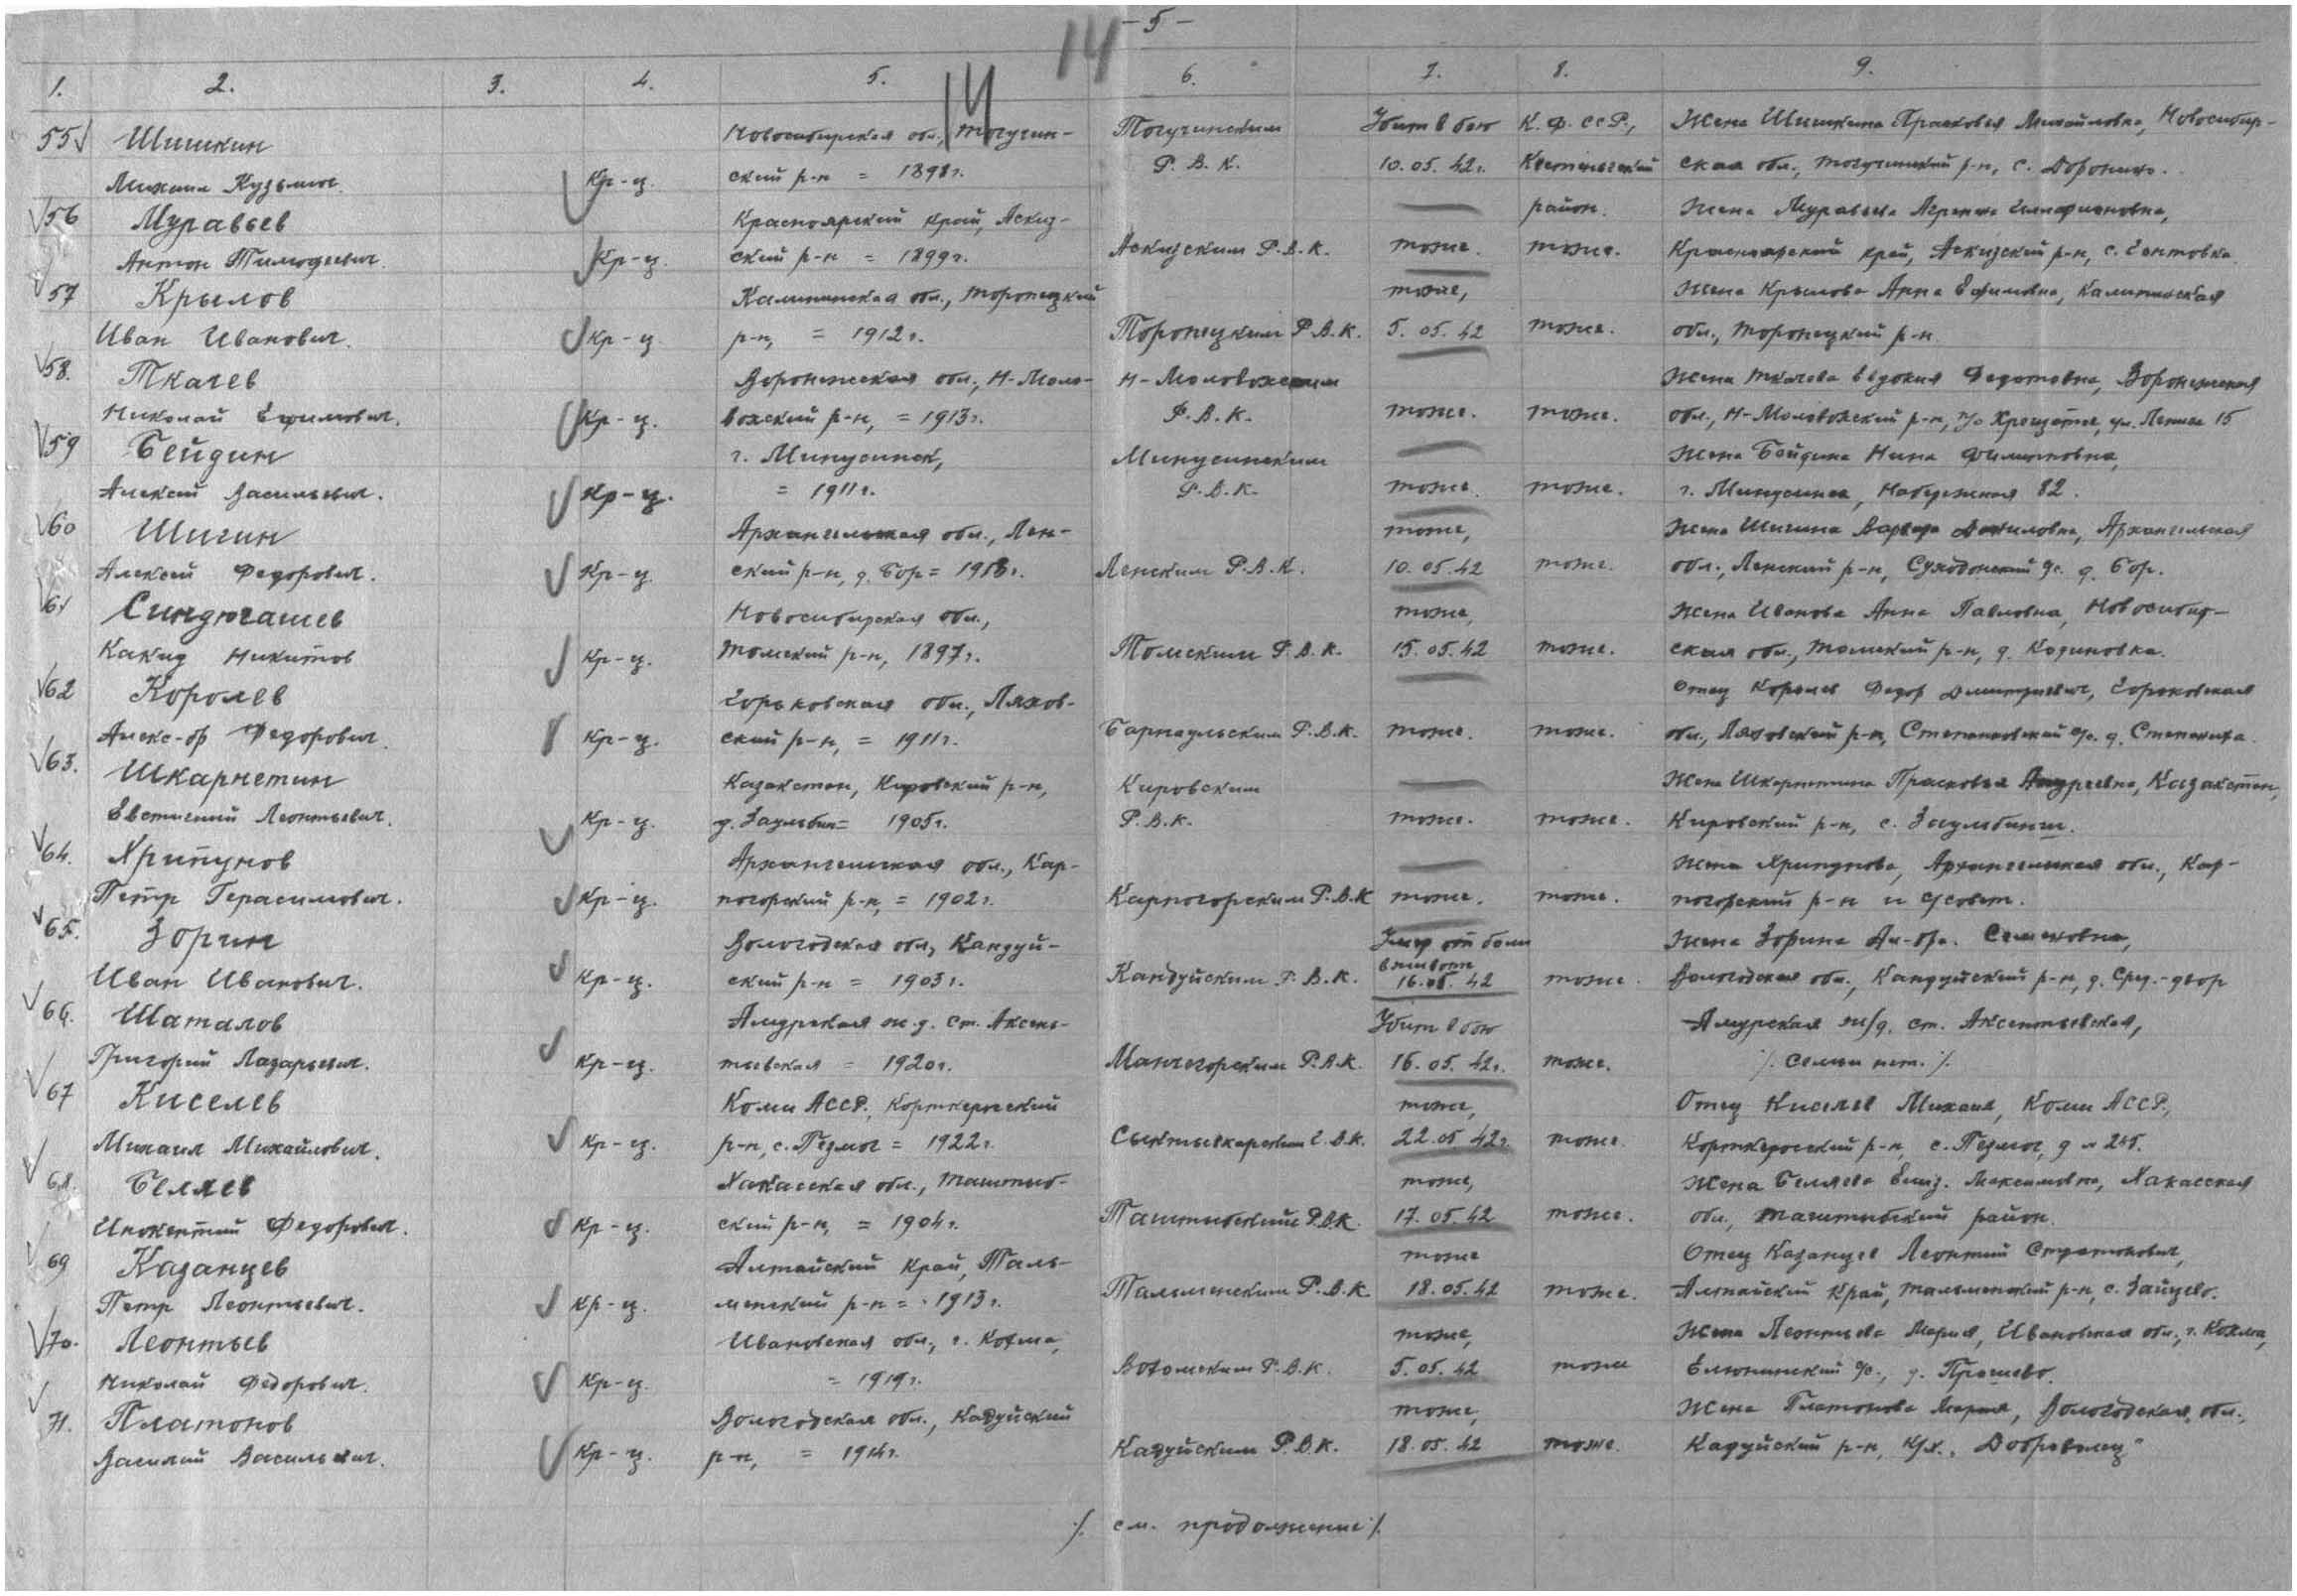 - 5 -
14
14
1. 2. 3. 4. 5. 6. 7. 8. 9.
55 Шишкин Новосибирская обл., Тогучин- Тогучинским Убит в бою К.Ф.ССР., Жена Шишкина Прасковья Михайловна, Новосибир-
Михаил Кузьмич. Кр-ц. ский р-н = 1898г. Р.В.К. 10.05.42г. Кестеньгский ская обл., Тогучинский р-н, с. Доронино.
56 Муравьев Красноярский край, Аскиз- район. Жена Муравьева
Антон Тимофеевич. Кр-ц. ский р-н = 1899г. Аскизским Р.В.К. тоже. тоже. Красноярский край, Аскизский р-н, с.
57 Крылов Калининская обл., Торопецкий тоже, Жена Крылова Анна Ефимовна, Калининская
Иван Иванович. Кр-ц р-н, = 1912г. Торопецким Р.В.К. 5.05.42 тоже. обл., Торопецкий р-н.
58. Ткачев Воронежская обл., Н-Моло- Н-Моловожским Жена Ткачева Евдокия Федотовна, Воронежская
Николай Ефимович. Кр-ц. вожский р-н, = 1913г. Р.В.К. тоже. тоже. обл., Н-Моловожский р-н, п/о ул. Ленина 15
59 Бейдин г. Минусинск, Минусинским Жена Бойдина Нина
Алексей Васильевич. Кр-ц. = 1911г. Р.В.К. тоже. тоже. г. Минусинск, Набережная 82.
60 Шигин Архангельская обл., Лен- тоже, Жена Шигина Варвара Даниловна, Архангельская
Алексей Федорович. Кр-ц. ский р-н, д. Бор = Ленским Р.В.К. 10.05.42 тоже. обл., Ленский р-н, с/с. д. Бор.
61 Синдюгашев Новосибирская обл., тоже, Жена Иванова Анна Павловна, Новосибир-
Какид Никитов Кр-ц. Томский р-н, 1897г. Томским Р.В.К. 15.05.42 тоже. ская обл., Томский р-н, д.
62 Королев Горьковская обл., Ляхов- Отец Королев Федор Дмитриевич, Горьковская
Алекс-др Федорович. Кр-ц. ский р-н, = 1911г. Барнаульским Р.В.К. тоже. тоже. обл., Ляховский р-н, Степаньковский с/с. д. Степаниха.
63. Шкарпетин Казахстан, Кировский р-н, Кировским Жена Шкарпетина Прасковья Андреевна, Казахстан,
Евстигний Леонтьевич. Кр-ц. = 1905г. Р.В.К. тоже. тоже. Кировский р-н, с.
64. Хрипунов Архангельская обл., Кар- Жена Хрипунова, Архангельская обл., Кар-
Петр Герасимович. Кр-ц. погорский р-н, = 1902г. Карпогорским Р.В.К тоже. тоже. погорский р-н и с/совет.
65. Зорин Вологодская обл., Кандуй- Умер от боли Жена Зорина Ал-др. Семеновна,
Иван Иванович. Кр-ц. ский р-н = 1903г. Кандуйским Р.В.К. в животе 16.05.42 тоже. Вологодская обл., Кандуйский р-н, д. Сред.-двор
66. Шаталов Амурская ж.д. ст. Аксень- Убит в бою Амурская ж/д. ст. Аксентьевская,
Григорий Лазарьевич. Кр-ц. тьевская = 1920г. Манчегорским Р.В.К. 16.05.42г. тоже. /. Семьи нет. /.
67 Киселев Коми АССР, Корткеросский тоже, Отец Киселев Михаил, Коми АССР,
Михаил Михайлович. Кр-ц. р-н, с. Пезмог = 1922г. Сыктывкарским Г.В.К. 22.05.42г. тоже. Корткеросский р-н, с. Пезмог, д №
68. Беляев Хакасская обл., Таштып- тоже, Жена Беляева Елиз. Максимовна, Хакасская
Инокентий Федорович. Кр-ц. ский р-н, = 1904г. Таштыпским Р.В.К. 17.05.42 тоже. обл., Таштыпский район.
69 Казанцев Алтайский край, Таль- тоже Отец Казанцев Леонтий Стратонович,
Петр Леонтьевич. Кр-ц. менский р-н = 1913г. Тальменским Р.В.К. 18.05.42 тоже. Алтайский край, Тальменский р-н, с. Зайцево.
70. Леонтьев Ивановская обл., г. Кохма, тоже, Жена Леонтьева Мария, Ивановская обл., г. Кохма,
Николай Федорович. Кр-ц. = 1919г. Р.В.К. 5.05.42 тоже с/с., д.
71. Платонов Вологодская обл., Кадуйский тоже, Жена Платонова Мария, Вологодская обл.,
Василий Васильевич. Кр-ц. р-н, = 1914г. Кадуйским Р.В.К. 18.05.42 тоже. Кадуйский р-н, к/х. „Доброволец"
/. см. продолжение /.